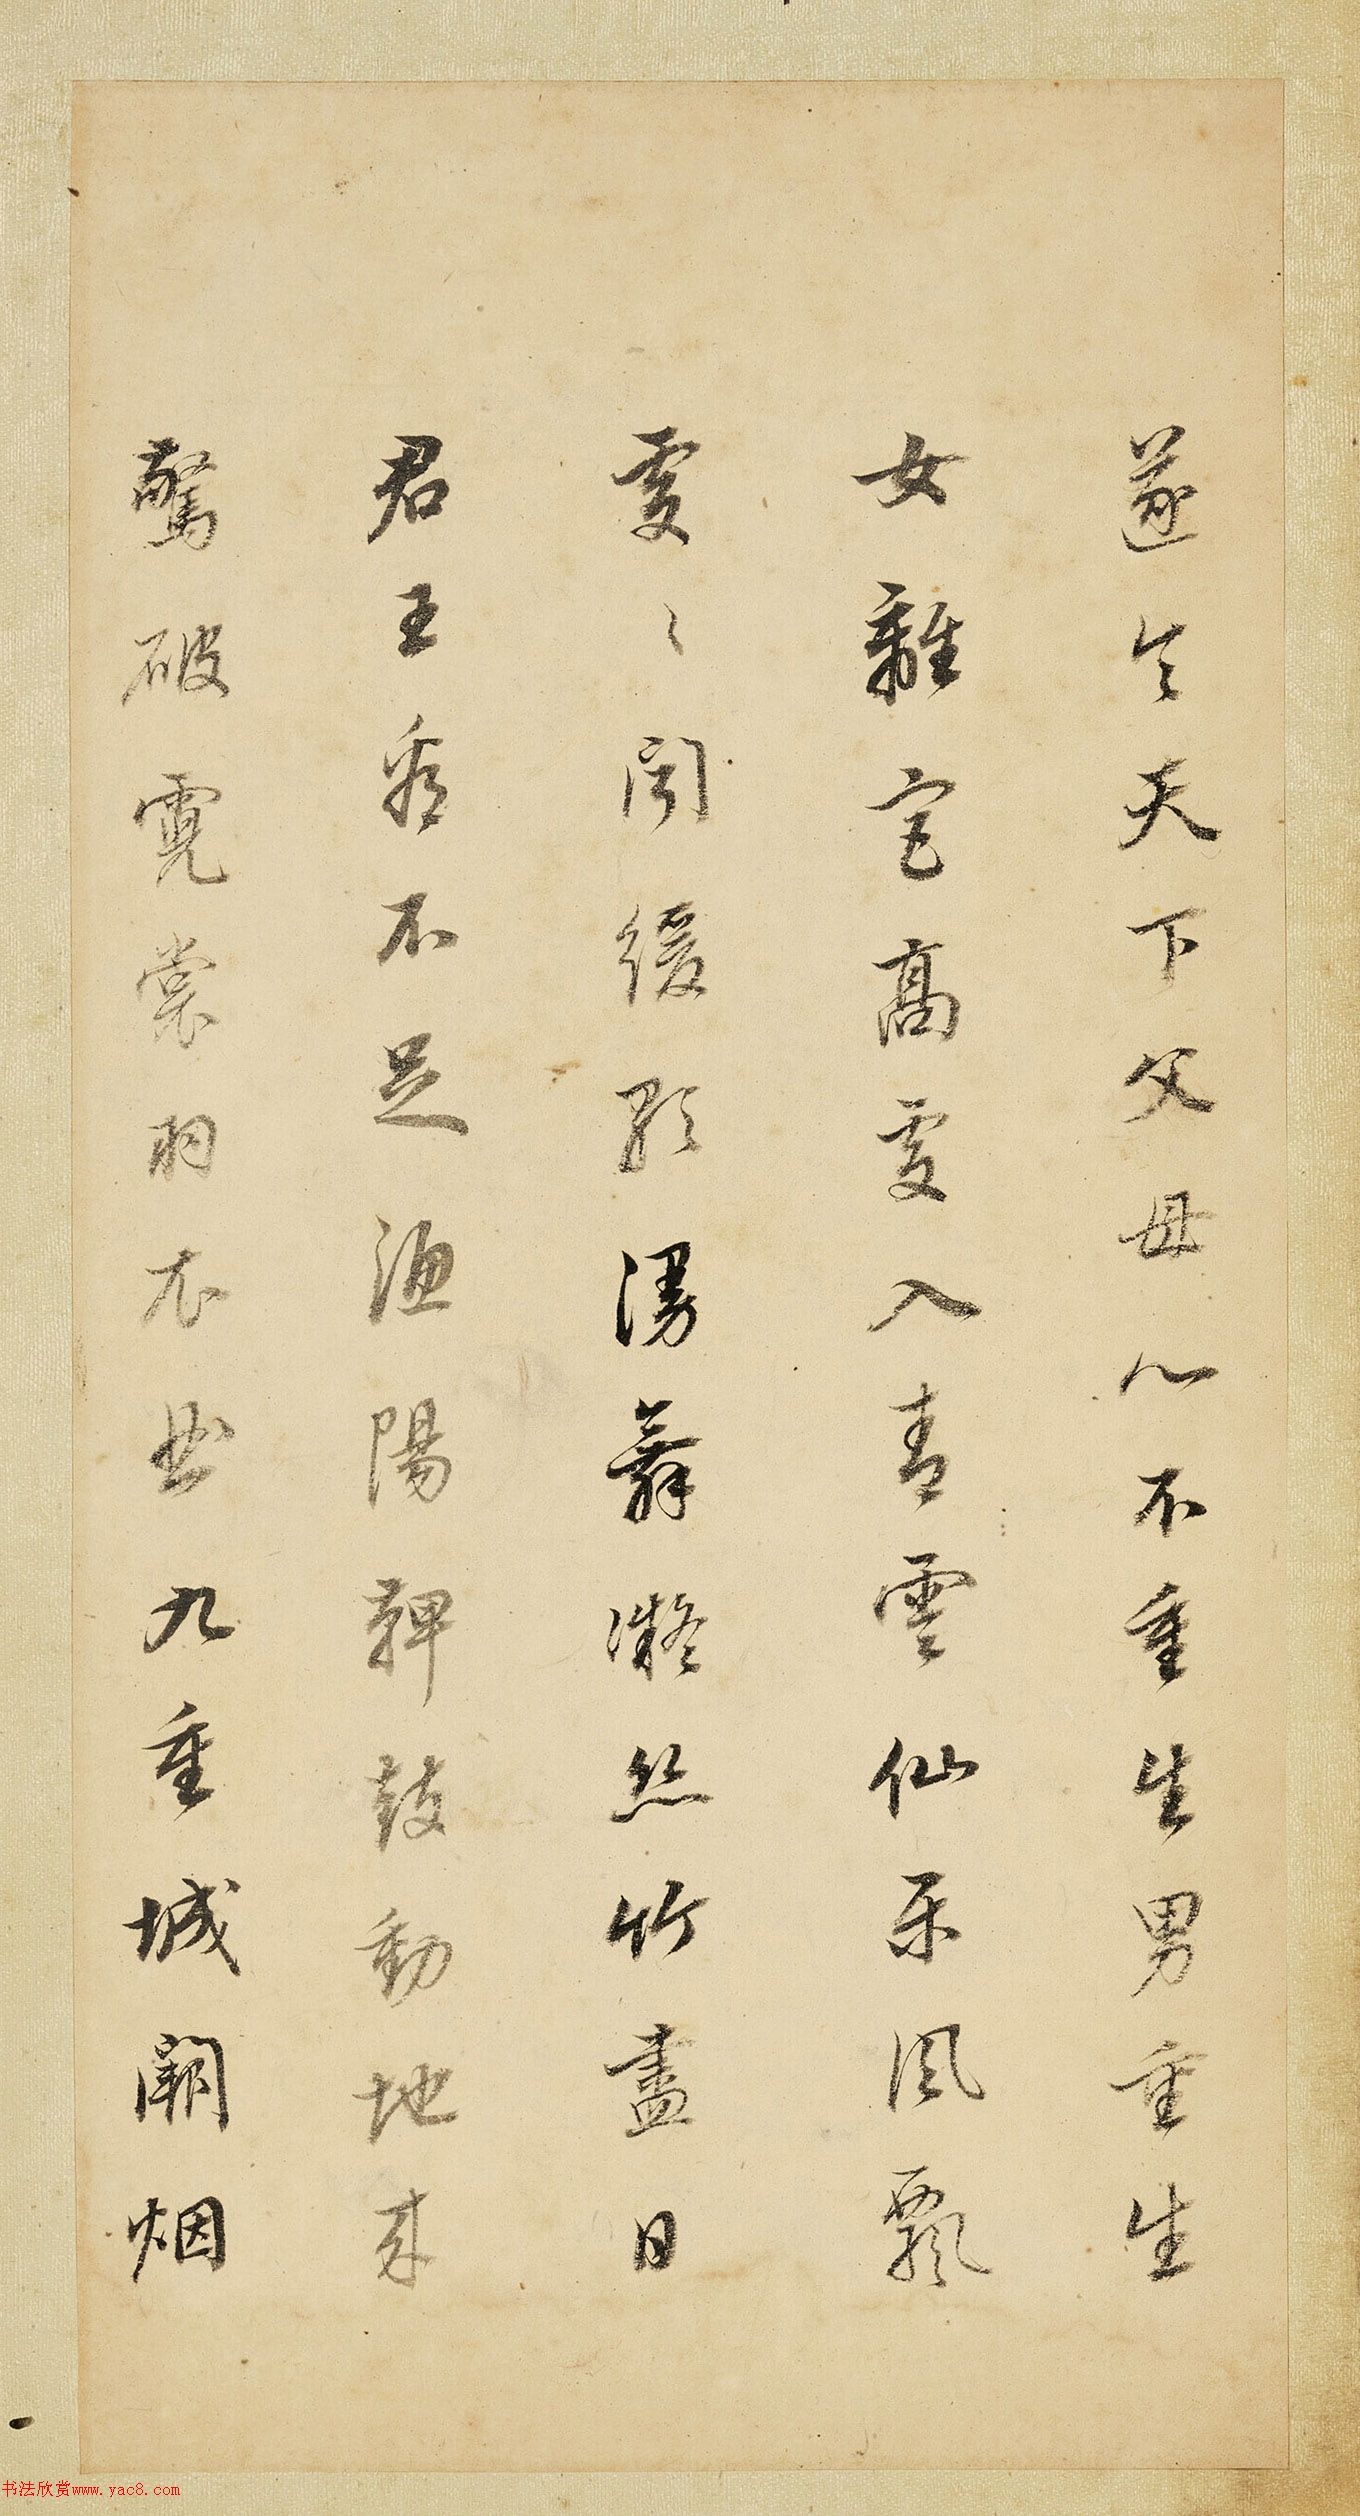 遂令天下父母心不重生男重生
女離宫高處入青雲仙樂風飄
處〻聞緩歌漫舞凝絲竹盡日
君王看不足漁陽鞞鼓動地來
驚破霓裳羽衣曲九重城闕烟
书法欣赏www.yac8.com